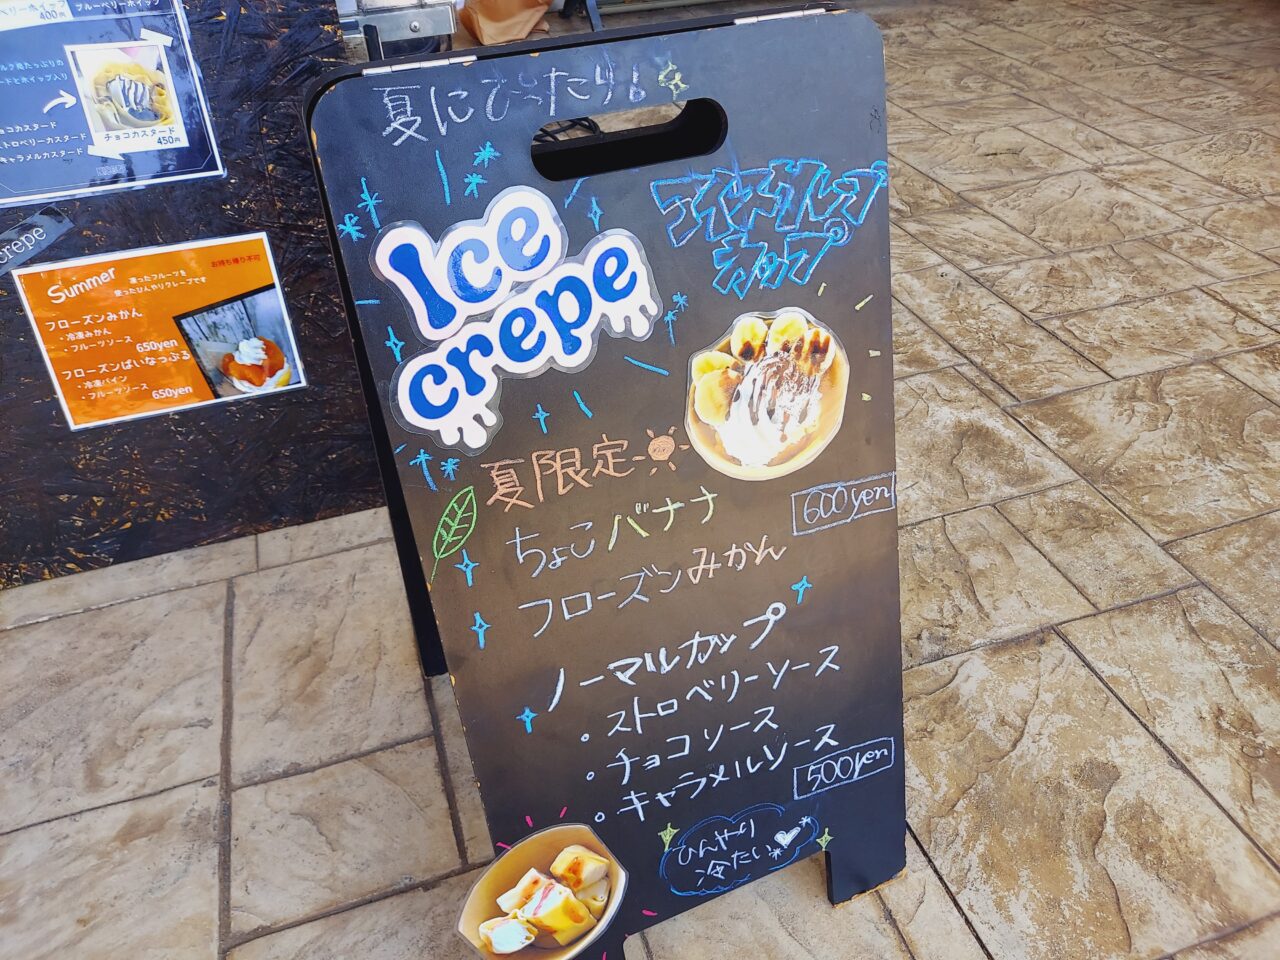 ブルーベリーホイップ
400円
チョコカスタード
450円
チョコカスタード
ストロベリーカスタード
キャラメルカスタード
crepe
Summer
お持ち帰り不可
凍ったフルーツを
使ったひんやりクレープです
フローズンみかん
・冷凍みかん
・フルーツソース
650yen
フローズンぱいなっぷる
・冷凍パイン
・フルーツソース
650yen
夏にぴったり!
アイスクレープ
カップ
Ice
crepe
夏限定
ちょこバナナ
600yen
フローズンみかん
ノーマルカップ
・ストロベリーソース
・チョコソース
・キャラメルソース
500yen
ひんやり
冷たい